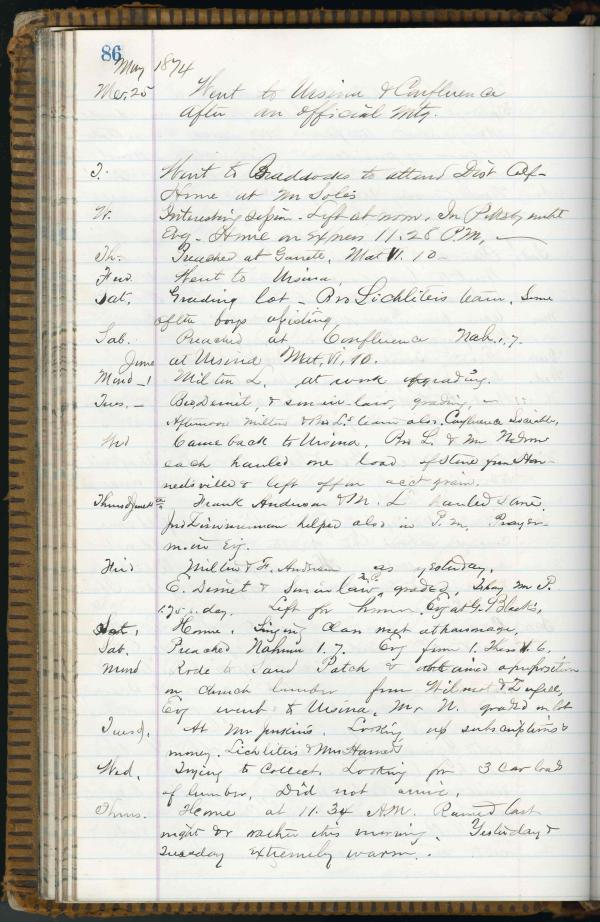 86
May 1874
Mo. 25 Went to Ursina & Confluence
after an official Mtg.
T. Went to Braddocks to attend Dist
Home at Mr Soles
W. Interesting Left at noon. In Pittsbg until
Evg. Home on Express 11.28 P.M.
Th. Preached at Garrett, Mat VI. 10
Frid. Went to Ursina,
Sat. Grading lot - Bro Lichliters team, Some
of the boys
Sab. Preached at Confluence Nah. 1.7.
June at Ursina Matt, VI, 10.
Mond _1 Milton L. at work grading.
Tues. - Bro. & son in law, grading,
Afternoon Milton & Bro L's team also. Confluence Sociable,
Wed Came back to Ursina. Bro L. & Mr
each hauled one load of stone from Har-
nedsville & left off on acct grain.
Thurs June 4 Frank Anderson & M. L hauled same.
Jno Zimmerman helped also in P.m. Prayer-
m in Evg.
Frid Milton & F. Anderson as yesterday,
E. & Son in law, graded, Mr P.
1.75 a day. Left for home. Evg at G. Black's,
Sat, Home. Singing Class met at parsonage,
Sab. Preached Nahum 1.7. Evg from 1. Thess V. 6.
Mond Rode to Sand Patch & obtained a proposition
on church lumber from Wilmot &
Evg went to Ursina, Mr N. graded on lot
Tuesd, At Mr Jenkins. Looking up subscriptions &
money. Lichliters & Mrs
Wed, Trying to Collect. Looking for 3 car load
of lumber, Did not arrive,
Thurs. Home at 11.34 A.M. Rained last
night or rather this morning. Yesterday &
Tuesday extremely warm.